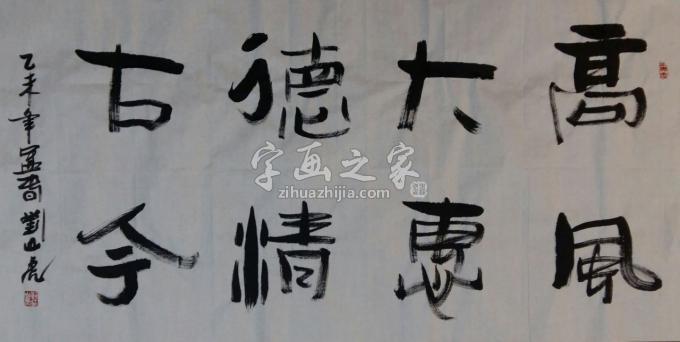 高風
大惠
德情
古今
乙未年劉山虎
字画之家
zihuazhijia.com